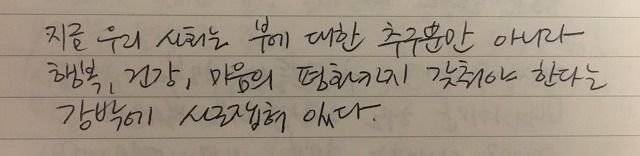 지금 우리 사회는 부에 대한 추구뿐만 아니라
행복, 건강, 마음의 평화까지 갖춰야 한다는
강박에 사로잡혀 있다.